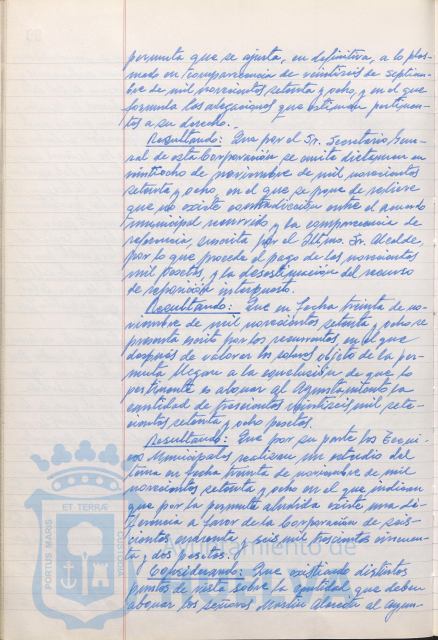 permuta que se ajusta, en definitiva, a lo plas-
mado en comparecencia de veintiseis de septiem-
bre de mil novecientos setenta y ocho, y en el que
formula las alegaciones que estiman pertinen-
tes a su derecho.-
Resultando: Que por el Sr. Secretario Gene-
ral de esta Corporación se emite dictamen en
veintiocho de noviembre de mil novecientos
setenta y ocho, en el que se pone de relieve
que no existe contradicción entre el acuerdo
municipal recurrido y la comparecencia de
referencia, suscrita por el Iltmo. Sr. Alcalde,
por lo que procede el pago de las novecientas
mil pesetas, y la desestimación del recurso
de reposición interpuesto.
Resultando: Que en fecha treinta de no-
viembre de mil novecientos setenta y ocho se
presenta escrito por los recurrentes, en el que
después de valorar los solares objeto de la per-
muta llegan a la conclusión de que lo
pertinente es abonar al Ayuntamiento la
cantidad de trescientas veintiseis mil sete-
cientas setenta y ocho pesetas.
Resultando: Que por su parte los Técni-
cos Municipales realizan un estudio del
tema en fecha treinta de noviembre de mil
novecientos setenta y ocho en el que indican
que por la permuta aludida existe una di-
ferencia a favor de la Corporación de seis-
cientas cuarenta y seis mil trescientas cincuen-
ta y dos pesetas.
Considerando: Que existiendo distintos
puntos de vista sobre la cantidad que deben
abonar los señores Martín al Ayun-
PORTUS MARIS
ET TERRÆ
CUSTODIA
Ayuntamiento de